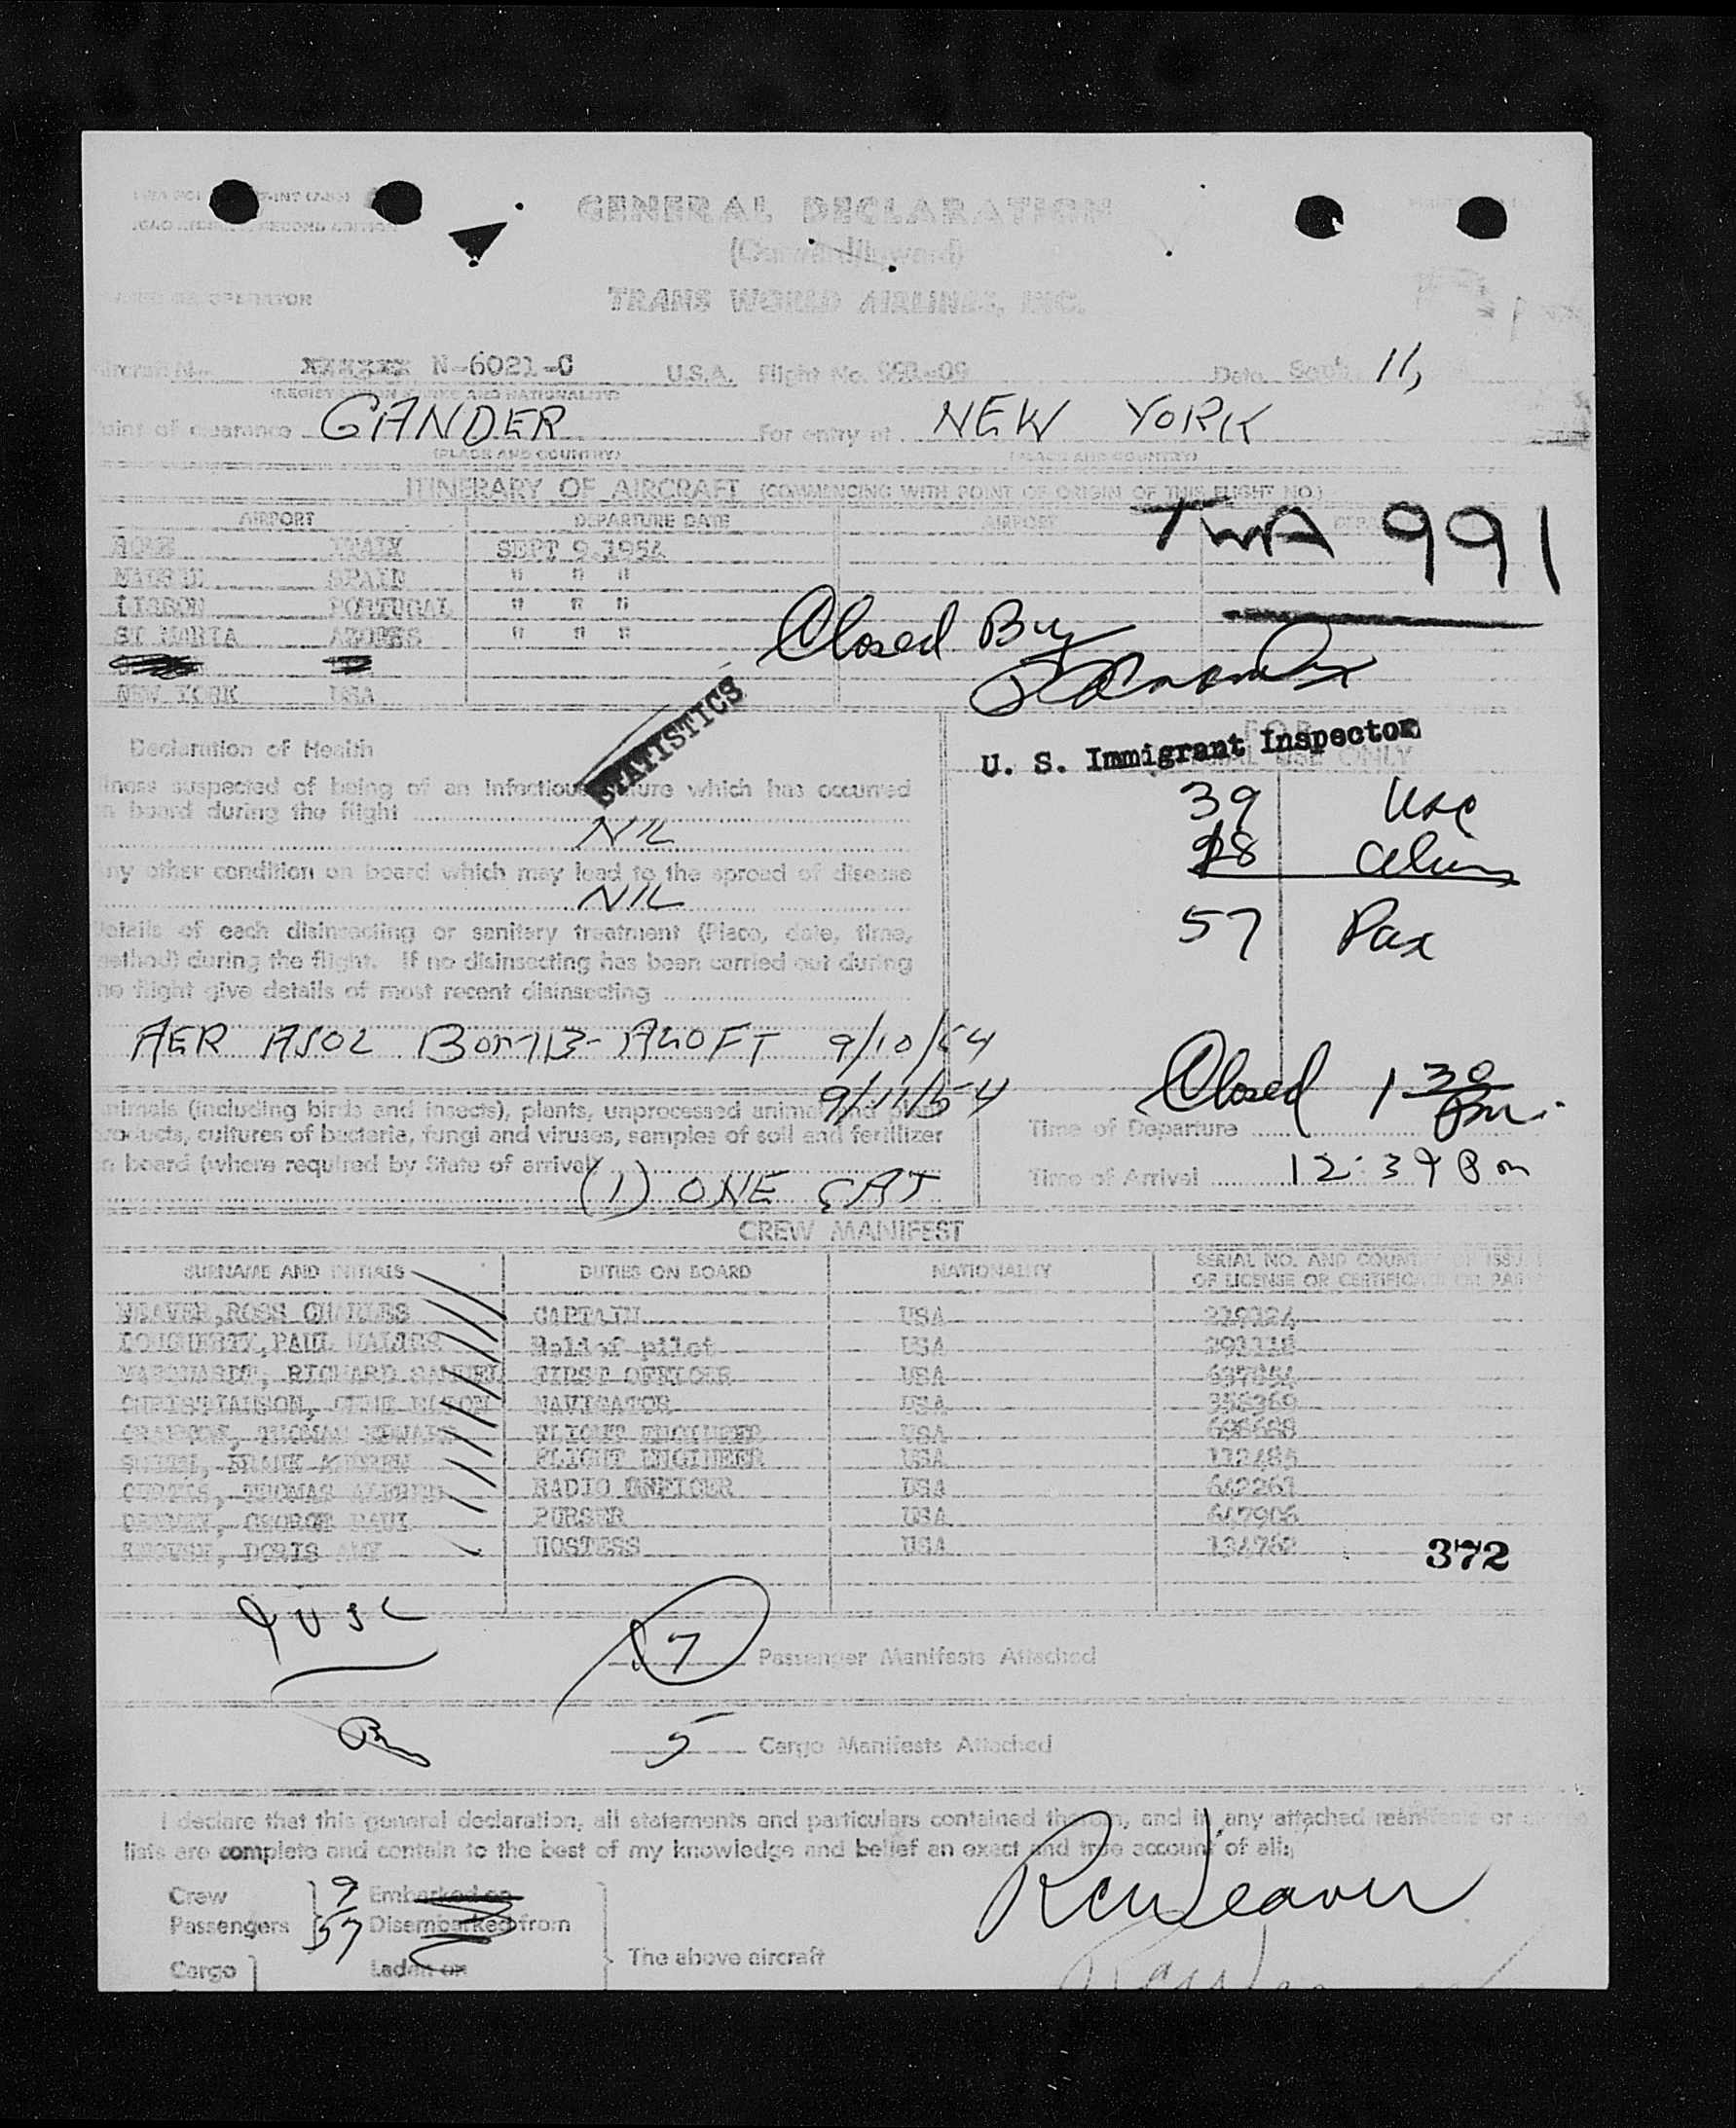 GENERAL DECLARATION
(Outward/Inward)
OR OPERATOR TRANS WORLD AIRLINES, INC.
Aircraft No. N-6021-C U.S.A. Flight No. Date Sept. 11,
(REGISTRATION MARKS AND NATIONALITY)
Point of clearance GANDER For entry at NEW YORK
(PLACE AND COUNTRY) (PLACE AND COUNTRY)
ITINERARY OF AIRCRAFT (COMMENCING WITH POINT OF ORIGIN OF THIS FLIGHT NO.)
AIRPORT DEPARTURE DATE AIRPORT
TWA 991
ROME SEPT 9,1954
MADRID SPAIN " " "
LISBON PORTUGAL " " "
ST MARIA AZORES " " "
NEW YORK USA
Closed By
U. S. Immigrant Inspector
STATISTICS
Declaration of Health
USE ONLY
Illness suspected of being of an infectious nature which has occurred
on board during the flight
NIL
39 USC
18 aliens
57 Pax
Any other condition on board which may lead to the spread of disease
NIL
Details of each disinsecting or sanitary treatment (Place, date, time,
method) during the flight. If no disinsecting has been carried out during
the flight give details of most recent disinsecting
AER ASOL BOMB- ALOFT 9/10/54
9/11/54
Closed 1 30 Pm.
Animals (including birds and insects), plants, unprocessed animal and plant
products, cultures of bacteria, fungi and viruses, samples of soil and fertilizer
on board (where required by State of arrival)
(1) ONE CAT
Time of Departure
Time of Arrival 12:39 Pm
CREW MANIFEST
SURNAME AND INITIALS DUTIES ON BOARD NATIONALITY SERIAL NO. AND COUNTRY OF ISSUE
OF LICENSE OR CERTIFICATE OR PASS
WEAVER, ROSS CHARLES CAPTAIN USA 219124
DOUGHERTY, PAUL Relief pilot USA
MARQUARDT, RICHARD SAMUEL FIRST OFFICER USA
CHRISTIANSON, NAVIGATOR USA 358369
THOMAS EDWARD FLIGHT ENGINEER USA 698688
FRANK ANDREW FLIGHT ENGINEER USA 112484
CURTIS, THOMAS RADIO OFFICER USA 642263
GEORGE PAUL PURSER USA 647906
DORIS HOSTESS USA 134762
372
9 USC
7 Passenger Manifests Attached
5 Cargo Manifests Attached
I declare that this general declaration, all statements and particulars contained therein, and in any attached manifests or
lists are complete and contain to the best of my knowledge and belief an exact and true account of all:
Crew 9 Embarked on
Passengers 57 Disembarked from
Cargo Laden on
The above aircraft
RCWeaver